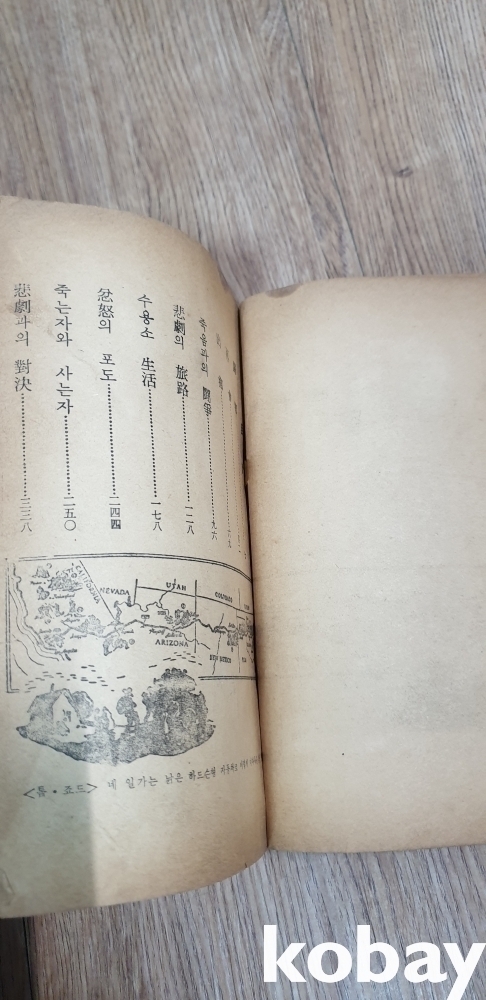 죽음과의 鬪爭……九六
悲劇의 旅路……一二八
수용소 生活……一七八
忿怒의 포도……二四四
죽는자와 사는자……二五〇
悲劇과의 對決……三三八
CALIFORNIA
NEVADA
UTAH
COLORADO
ARIZONA
NEW MEXICO
<톰·죠드> 네 일가는 낡은 하드슨형
kobay